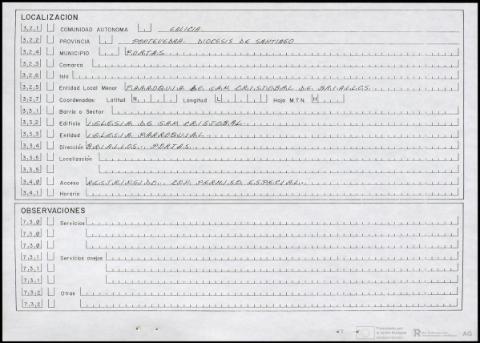 LOCALIZACION
3,2,1 COMUNIDAD AUTONOMA GALICIA
3,2,2 PROVINCIA PONTEVEDRA. DIOCESIS DE SANTIAGO
3,2,4 MUNICIPIO PORTAS
3,2,3 Comarca
3,2,6 Isla
3,2,5 Entidad Local Menor PARROQUIA DE SAN CRISTOBAL DE BRIALLOS
3,2,7 Coordenadas Latitud N Longitud L Hoja M.T.N. H
3,3,1 Barrio o Sector
3,3,2 Edificio IGLESIA DE SAN CRISTOBAL
3,3,3 Entidad IGLESIA PARROQUIAL
3,3,4 Dirección BRIALLOS. PORTAS
3,3,5 Localización
3,3,5
3,4,0 Acceso RESTRINGIDO. CON PERMISO ESPECIAL.
3,4,1 Horario
OBSERVACIONES
7,3,0 Servicios
7,3,0
7,3,0
7,3,1 Servicios anejos
7,3,1
7,3,1
7,3,2 Otros
7,3,2
AG